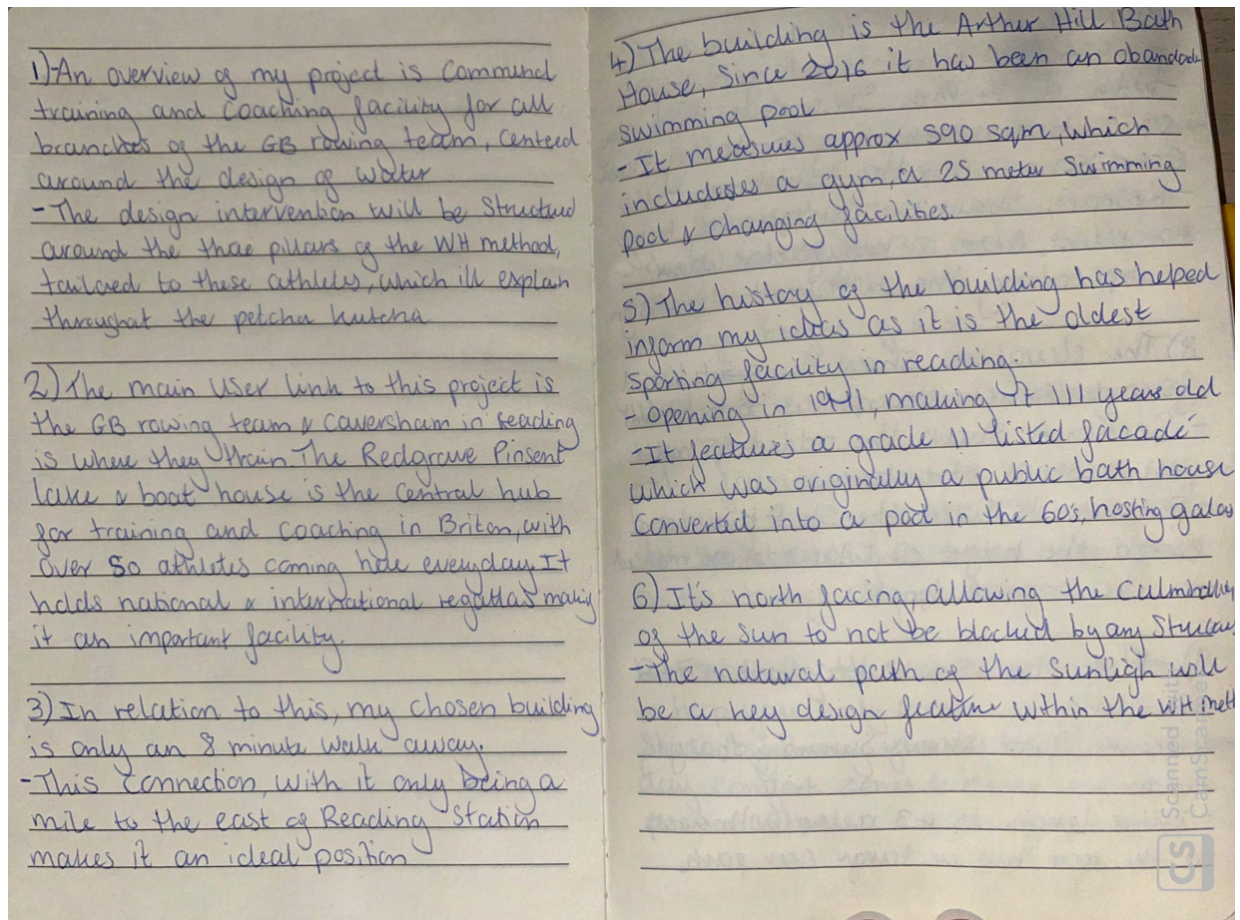 1) An overview of my project is Commund
training and coaching facility for all
branches of the GB rowing team, Centeed
around the design of water
- The design intervention will be Structurd
around the three pillars of the WH method,
tailored to these athletes, which ill explain
throughat the petcha kutcha
2) The main user link to this project is
the GB rowing team & caversham in reading
is where they train. The Redgrave Pinsent
lake & boat house is the central hub
for training and coaching in Briton, with
over 50 athletes coming here everyday. It
holds national & international regattas making
it an important facility.
3) In relation to this, my chosen building
is only an 8 minute walk away.
- This connection, with it only being a
mile to the east of Reading Station
makes it an ideal position
4) The building is the Arthur Hill Bath
House, Since 2016 it has been an
swimming pool
- It measures approx 590 sqm, which
includes a gym, a 25 meter Swimming
pool & changing facilities.
5) The history of the building has helped
inform my ideas as it is the oldest
sporting facility in reading
- opening in 1911, making it 111 years old
- It features a grade 11 listed facade
which was originally a public bath house
converted into a pool in the 60's, hosting galas
6) It's north facing, allowing the
of the sun to not be blocked by any
- The natural path of the Sunligh will
be a key design feature within the WH meth
Scanned with
CamScanner
CS